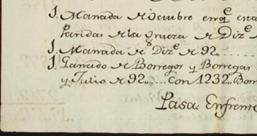 1. Manada de Octubre en q.e esta
Paridas de la Gruesa de Diz.e
1. Manada de Diz.e de 92
1. Ganado de Borregos y Borregas
y Julio de 92 con 1232 Borr
Pasa Enfrente